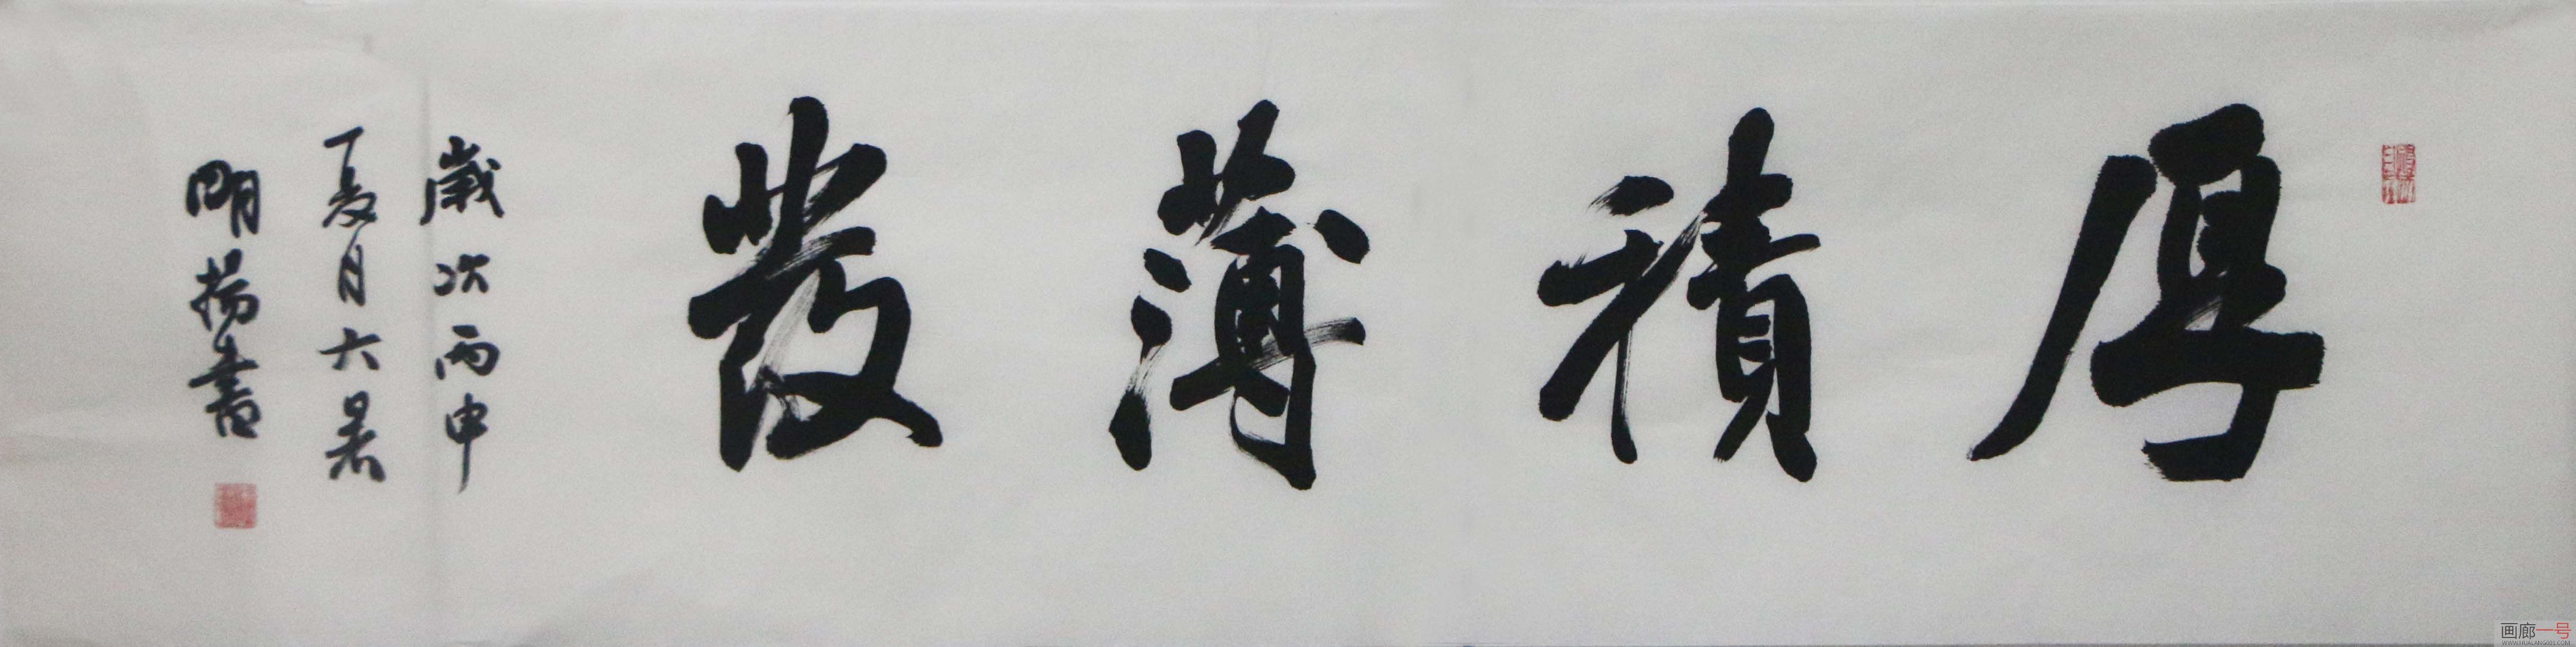 厚積薄發
歲次丙申
夏月大暑
明揚書
画廊一号